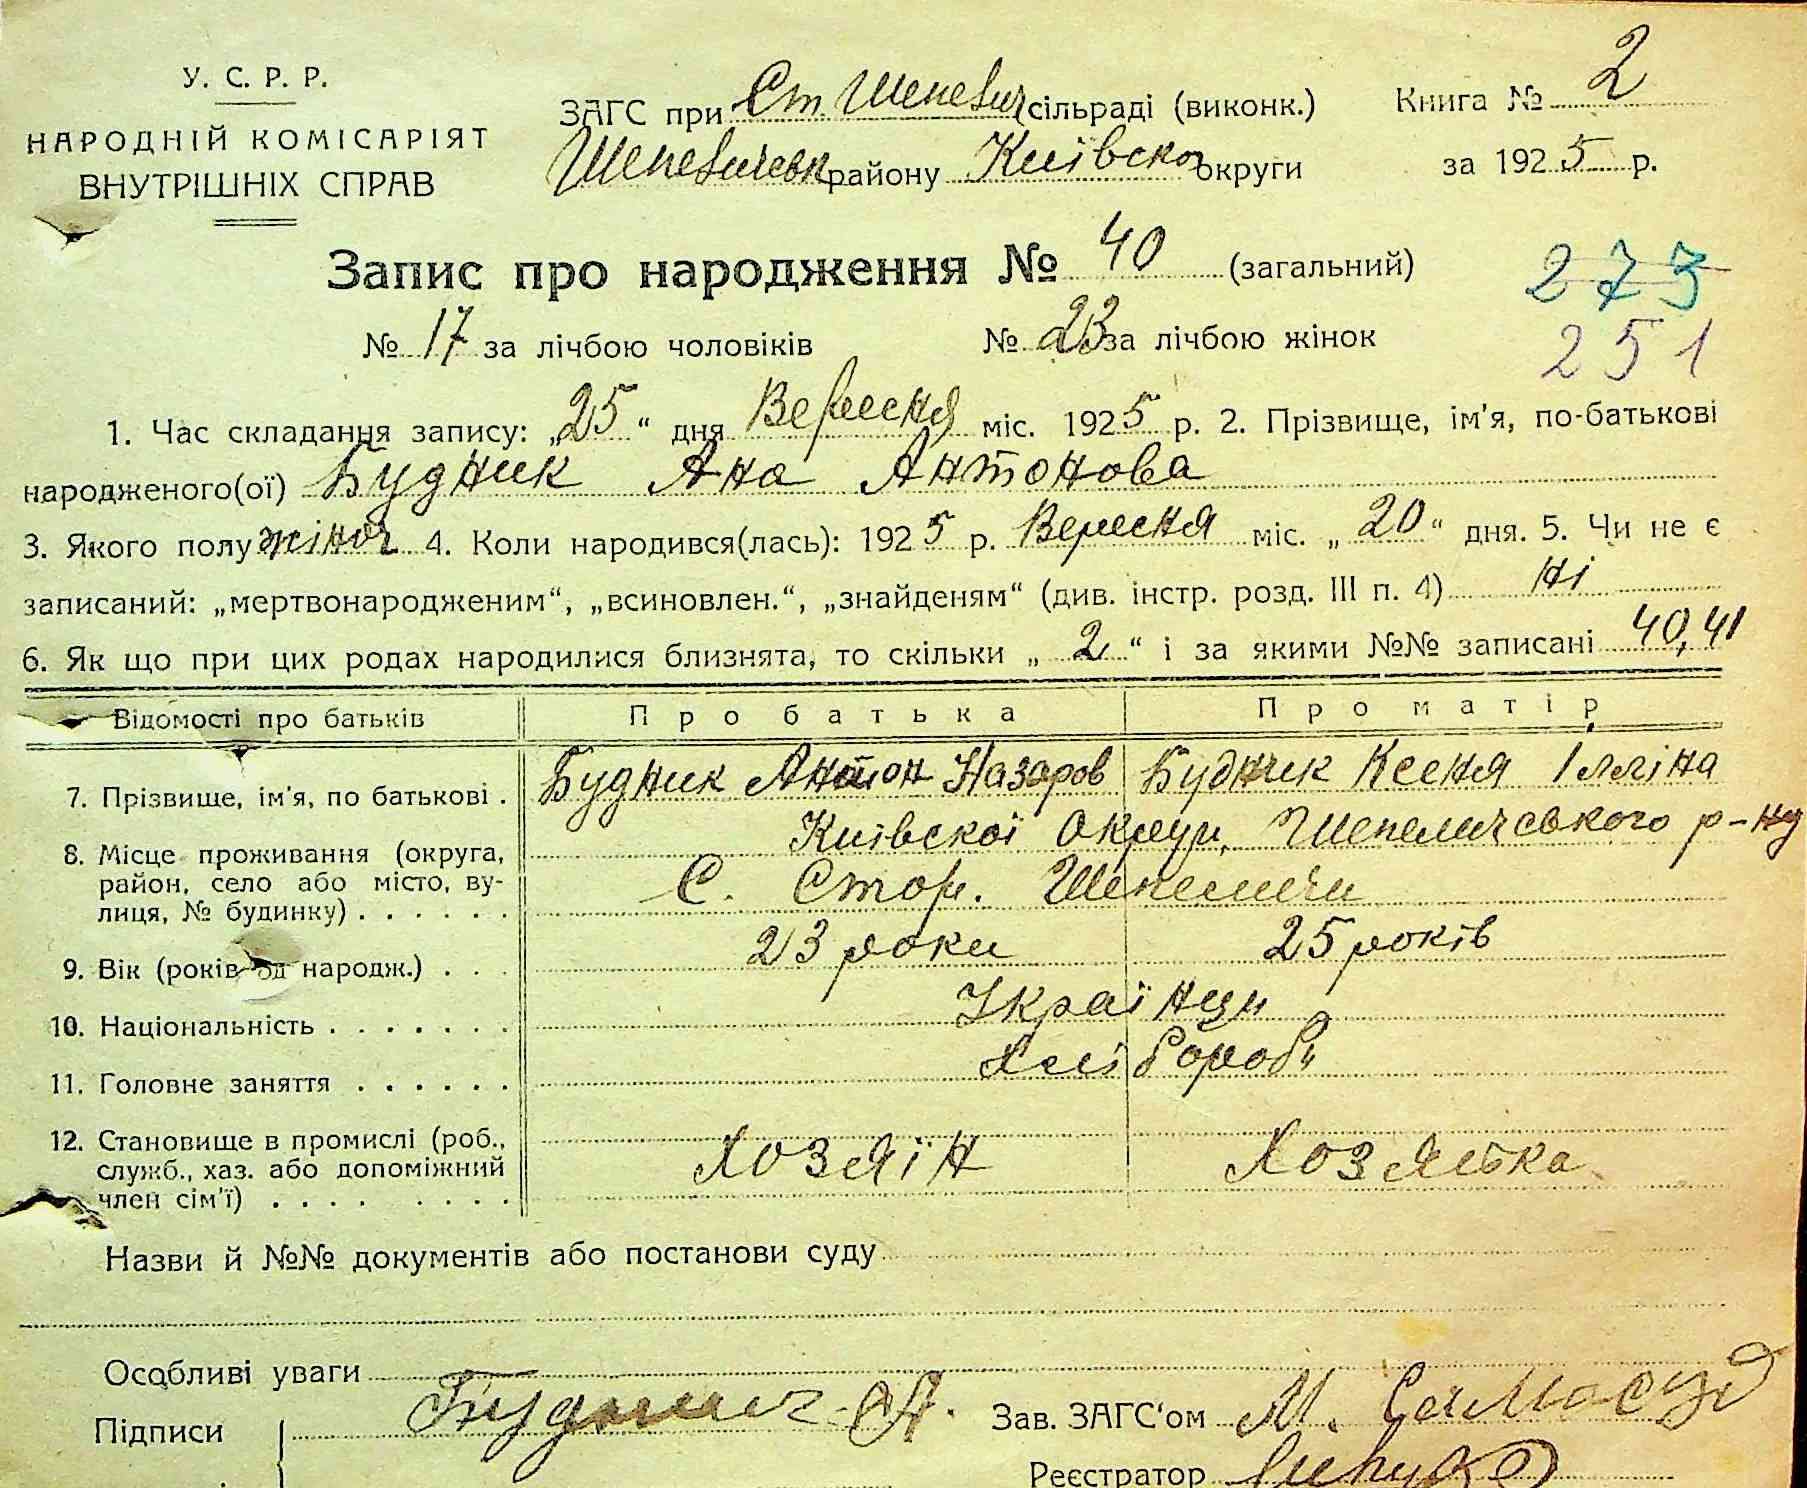 У. С. Р. Р.
НАРОДНІЙ КОМІСАРІЯТ
ВНУТРІШНІХ СПРАВ
ЗАГС при Ст. Шепелич сільраді (виконк.)
Книга № 2
Шепеличевск району Київско округи
за 1925 р.
Запис про народження № 40 (загальний)
273
№ 17 за лічбою чоловіків № 23 за лічбою жінок
251
1. Час складання запису: „25“ дня Вересня міс. 1925 р. 2. Прізвище, ім'я, по-батькові
народженого(ої) Будник Ана Антонова
3. Якого полу жіноч 4. Коли народився(лась): 1925 р. Вересня міс. „20“ дня. 5. Чи не є
записаний: „мертвонародженим“, „всиновлен.“, „знайденям“ (див. інстр. розд. III п. 4) ні
6. Як що при цих родах народилися близнята, то скільки „2“ і за якими №№ записані 40, 41
Відомості про батьків
Про батька
Про матір
7. Прізвище, ім'я, по батькові .
Будник Антон Назаров
Будник Ксеня Ілліна
8. Місце проживання (округа,
район, село або місто, ву-
лиця, № будинку) . . . . . .
Київскої Округи, Шепеличського р-ну
С. Стор. Шепеличи
9. Вік (років од народж.) . . .
23 роки
25 років
10. Національність . . . . . . .
Українци
11. Головне заняття . . . . . .
Хліборобы
12. Становище в промислі (роб.,
служб., хаз. або допоміжний
член сім'ї) . . . . . . . .
Хозяїн
Хозяйка
Назви й №№ документів або постанови суду
Особливі уваги
Підписи
Будник А.
Зав. ЗАГС'ом М.
Реєстратор